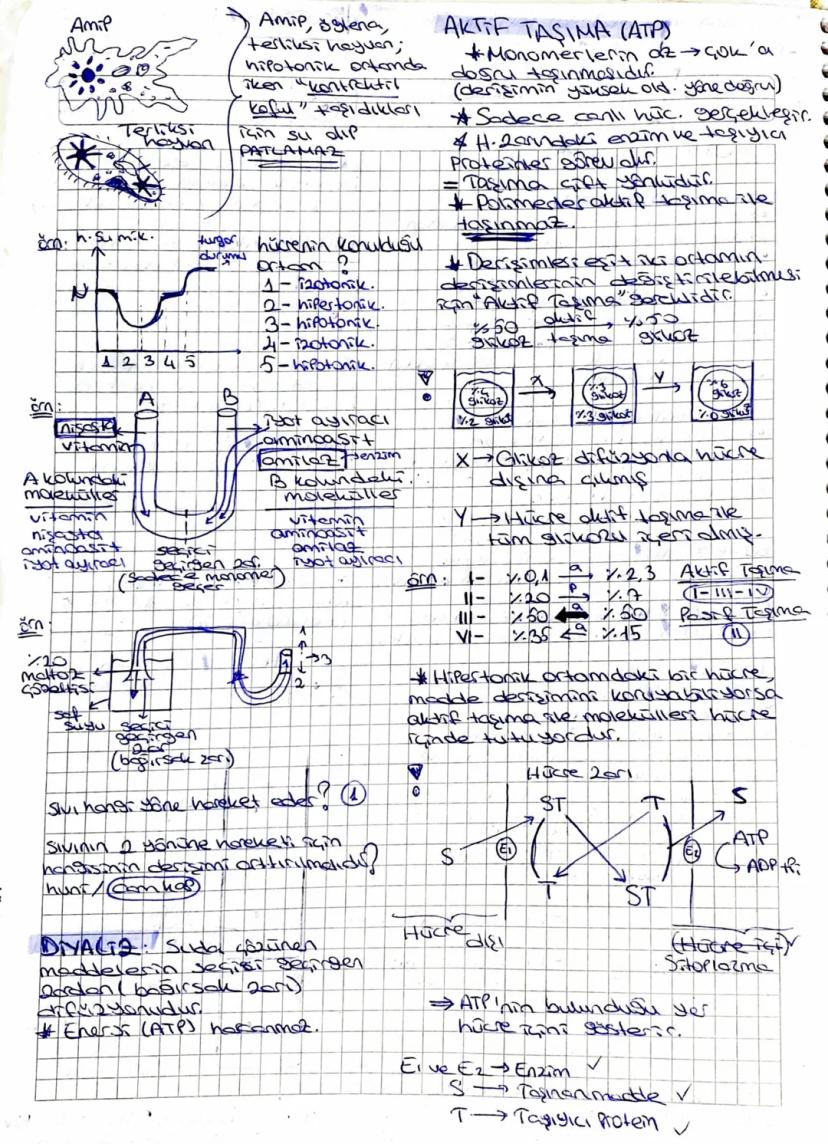 Amip
Amip, öglena,
terliksi hayvan;
hipotonik ortamda
iken "kontraktil
koful" taşıdıkları
için su alıp
PATLAMAZ
Terliksi
hayvan
örn: h. su mik.
turgor
durumu
N
1 2 3 4 5
hücrenin konulduğu
ortam?
1- izotonik.
2- hipertonik.
3- hipotonik.
4- izotonik.
5- hipotonik.
örn:
A
B
nişasta
vitamin
iyot ayıracı
aminoasit
amilaz → enzim
A kolundaki
moleküller
vitamin
nişasta
aminoasit
iyot ayıracı
B kolundaki
moleküller
vitamin
aminoasit
amilaz
iyot ayıracı
seçici
geçirgen zar.
(sadece monomer
geçer)
örn
%20
maltoz
çözeltisi
saf
suyu
seçici
geçirgen
zar
(bağırsak zarı)
1
1
→3
2
sıvı hangi yöne hareket eder? 1
sıvının 2 yönüne hareketi için
hangisinin derişimi arttırılmalıdır?
huni / cam kap
DİYALİZ: Suda çözünen
maddelerin seçici geçirgen
zardan (bağırsak zarı)
difüzyonudur.
* Enerji (ATP) harcanmaz.
AKTİF TAŞIMA (ATP)
* Monomerlerin az → çok'a
doğru taşınmasıdır.
(derişimin yüksek old. yöne doğru)
* Sadece canlı hüc. gerçekleşir.
* H. zarındaki enzim ve taşıyıcı
proteinler görev alır.
= Taşıma çift yönlüdür.
* Polimerler aktif taşıma ile
taşınmaz.
* Derişimleri eşit iki ortamın
derişimlerinin değiştirilebilmesi
için "Aktif Taşıma" gereklidir.
%50 aktif → %50
glikoz taşıma glikoz
!
%4
glikoz
%2 glikoz
X →
%3
glikoz
%3 glikoz
Y →
%6
glikoz
%0 glikoz
X → Glikoz difüzyonla hücre
dışına çıkmış
Y → Hücre aktif taşıma ile
tüm glikozu içeri almış.
örn: I- %0,1 a → %2,3 Aktif Taşıma
II- %20 p → %7 I-III-IV
III- %50 ← a %50 Pasif Taşıma
VI- %35 ← a %15 II
* Hipertonik ortamdaki bir hücre,
madde derişimini koruyabiliyorsa
aktif taşıma ile molekülleri hücre
içinde tutuyordur.
!
Hücre zarı
ST T S
S E1 E2 ATP
ADP + Pi
T ST
Hücre dışı
(Hücre içi)
Sitoplazma
⇒ ATP'nin bulunduğu yer
hücre içini gösterir.
E1 ve E2 → Enzim ✓
S → Taşınan madde ✓
T → Taşıyıcı Protein ✓